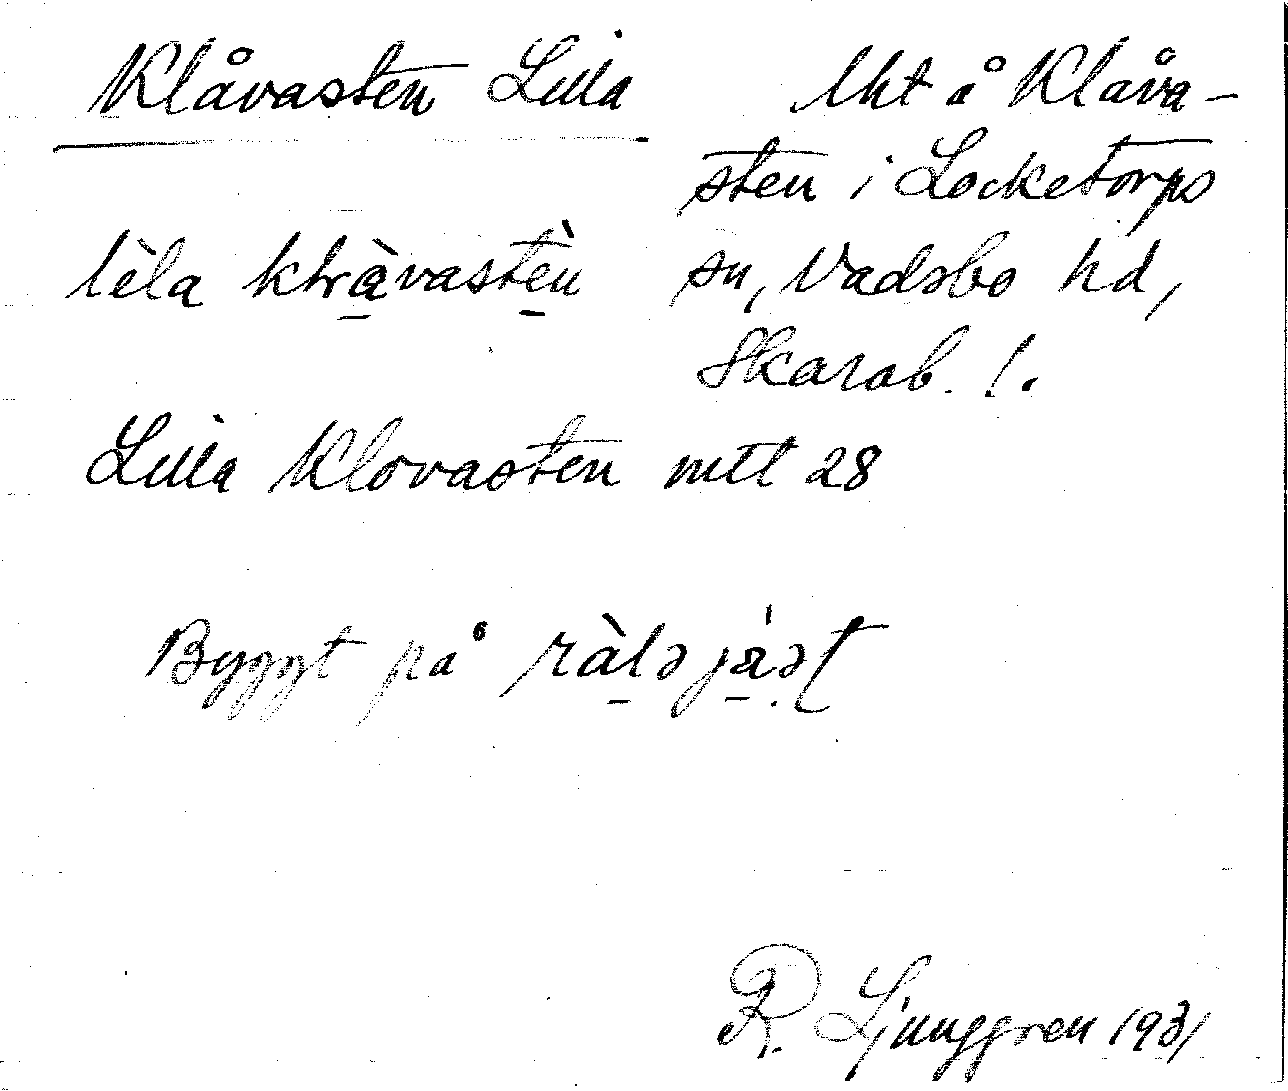 Klåvasten Lilla
lht å Klåva-
sten i Locketorps
sn, Vadsbo hd,
Skarab. l.
lèla
Lilla Klovasten mtl 28
Byggt på
R. Ljunggren 1931